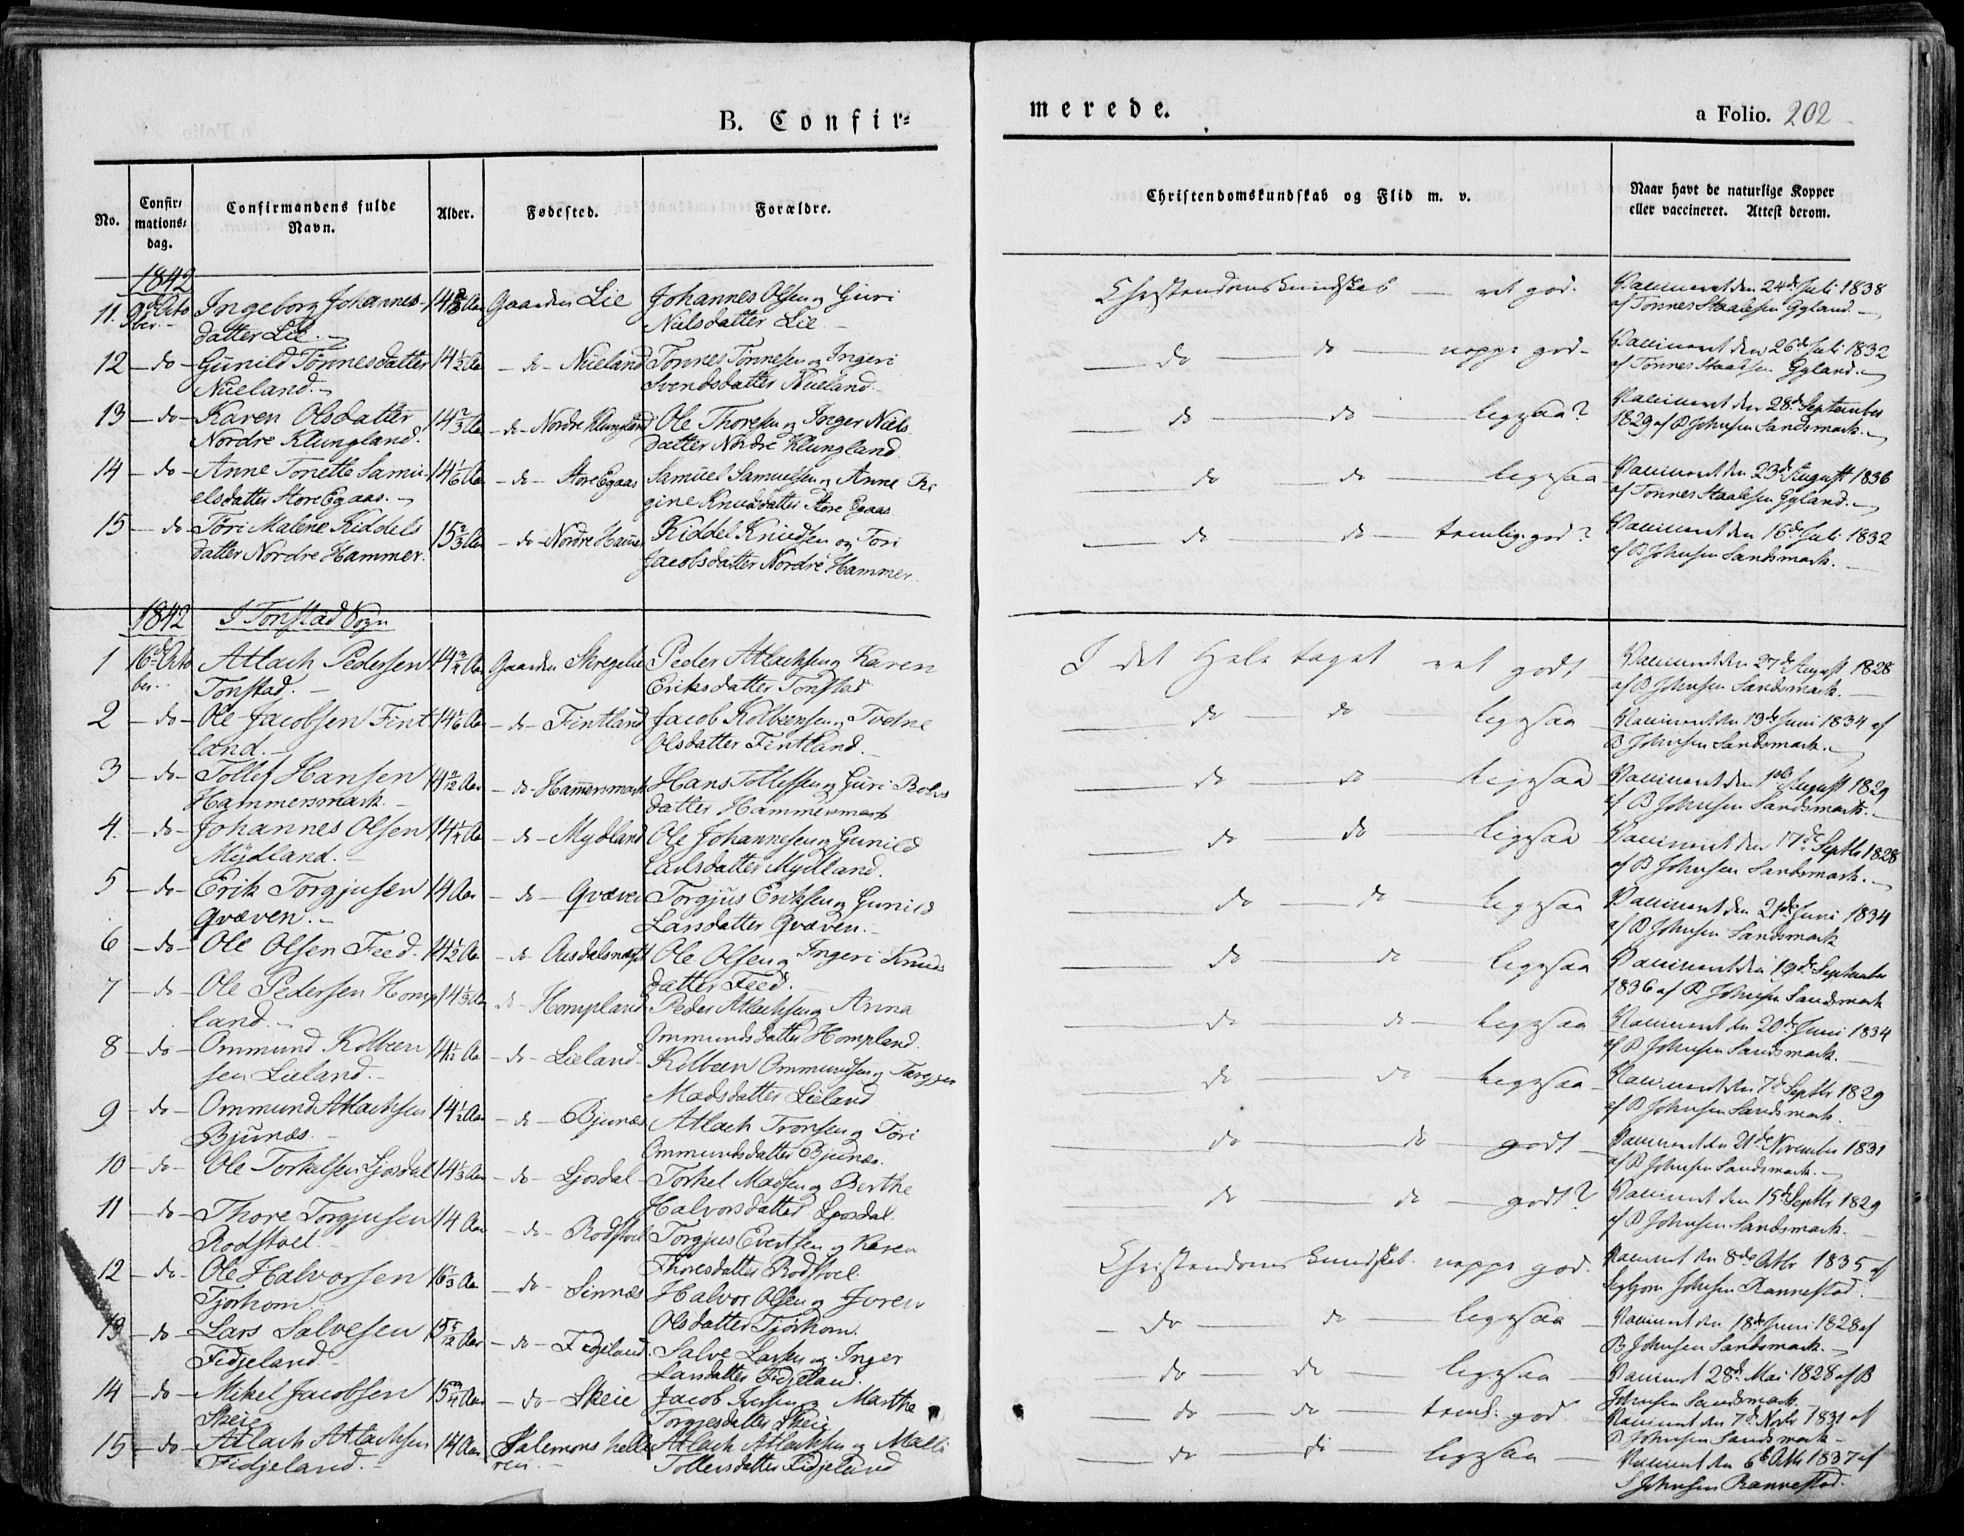 B. Confir=
merede.
a Folio. 202
No.
Confir-
mations-
dag.
Confirmandens fulde
Navn.
Alder.
Fødested.
Forældre.
Christendomskundskab og Flid m. v.
Naar havt de naturlige Kopper
eller vaccineret. Attest derom.
1842
11. 9de Octo Ingeborg Johannes- Gaarden Lie Johannes Olsen og Guri Christendomskundskab — ret god. Vaccineret den 24de Juli 1838
ber. — datter Lie. — Nielsdatter Lie — af Tønnes Staalesen Gyland. —
12 — do — Gunild Tønnesdatter 14 1/2 Aar — do — Nueland Tønnes Tønnesen og Ingeri — do — do — neppe god — Vaccineret den 26de Juli 1832
Nueland. — Svendsdatter Nueland. — af Tønnes Staalesen Gyland. —
13 — do — Karen Olsdatter 14 2/3 Aar — do — Nordre Klungland Ole Thoresen og Inger Niels — do — do — ligesaa? Vaccineret den 28de September
Nordre Klungland. datter Nordre Klungland. 1829 af B Johnsen Sandsmark. —
14 — do — Anne Tonette Samu- 14 1/6 Aar — do — Store Egaas Samuel Samuelsen og Anne Re — do — do — ligesaa Vaccineret den 23de August 1836
elsdatter Store Egaas. — gine Knudsdatter Store Egaas af Tønnes Staalesen Gyland. —
15 — do Tori Malene Kiddels 15 2/3 Aar — do — Nordre Hamer Kiddel Knudsen og Tori — do — do — temlig god? Vaccineret den 16de Juli 1832
datter Nordre Hammer. Jacobsdatter Nordre Hammer. af B Johnsen Sandsmark. —
1842 I Tonstad Sogn
1 16de Octo Atlach Pedersen 14 3/4 Aar Gaarden Skregelie Peder Atlachsen og Karen I det Hele taget ret godt Vaccineret den 27de August 1828
ber. — Tonstad. — Eriksdatter Tonstad af B Johnsen Sandsmark. —
2 — do — Ole Jacobsen Fint 14 1/6 Aar — do — Fintland Jacob Kolbensen og Tvedne — do — do — ligesaa — Vaccineret den 19de Juni 1834 af
land. — Olsdatter Fintland. — B Johnsen Sandsmark. —
3 — do — Tollef Hansen — do — Hamersmark Hans Tollefsen og Guri — do — do — ligesaa Vaccineret den 1ste August 1829
Hammersmark — datter Hammersmark af B Johnsen Sandsmark. —
4. — do — Johannes Olsen 14 1/4 Aar — do — Mydland Ole Johannesen og Gunild — do — do — ligesaa Vaccineret den 17de Septbr 1828
Mydland. — Larsdatter Mydland. af B Johnsen Sandsmark. —
5 — do — Erik Torgjusen 14 Aar — do — Qvæven Torgjus Eriksen og Gunild — do — do — ligesaa Vaccineret den 21de Juni 1834
Qvæven. — Larsdatter Qvæven. — af B Johnsen Sandsmark
6 — do — Ole Olsen Feed. 14 1/2 Aar — do — Ole Olsen og Ingeri Knuds — do — do — ligesaa Vaccineret den 19de September
datter Feed. — 1836 af B Johnsen Sandsmark
7 — do — Ole Pedersen Homp 14 1/3 Aar do — Hompland Peder Atlachsen og Anna — do — do — ligesaa Vaccineret den 20de Juni 1834
land. — Ommundsdatter Hompland. af B Johnsen Sandsmark. —
8 — do — Ommund Kolbeen — do — Lieland Kolbeen Ommundsen og — do — do — ligesaa — Vaccineret den 7de Septbr 1829
sen Lieland. — Madsdatter Lieland af B Johnsen Sandsmark.
9 — do — Ommund Atlachsen 14 1/2 Aar — do — Bjunæs Atlach Tronsen og Tori — do — do — godt — Vaccineret den 21de November 1831
Bjunæs. — Ommundsdatter Bjunæs. af B Johnsen Sandsmark. —
10 — do — Ole Torkelsen Ljosdal 14 1/3 Aar — do — Ljosdal — Torkel Madsen og Berthe — do — do — godt? Vaccineret den 15de Septbr 1829
Halvorsdatter Ljosdal. af B Johnsen Sandsmark.
11 — do — Thore Torgjusen 14 Aar — do — Rodstoel Torgjus Evertsen og Karen Christendomskundskab neppe god. Vaccineret den 8de Octbr 1835 af
Rodstoel — Thoresdatter Rodstoel. Johnsen Rannestad.
12 — do — Ole Halvorsen 16 1/3 Aar — do — Sinnæs Halvor Olsen og Joren — do — do — ligesaa — Vaccineret den 18de Juni 1828 af
Tjorhom. Olsdatter Tjorhom. B Johnsen Sandsmark. —
13 — do — Lars Salvesen 15 5/12 Aar — do — Fidjeland. Salve Larsen og Inger — do — do — ligesaa — Vaccineret 28de Mai 1828 af B
Fidjeland. — Larsdatter Fidjeland. Johnsen Sandsmark.
14 — do — Mikel Jacobsen 15 3/4 Aar — do — Skeie Jacob og Marthe — do — do — teml. god Vaccineret den 7de Novbr 1831 af
Skeie Torgjesdatter Skeie B Johnsen Sandsmark —
15 — do — Atlach Atlachsen 14 Aar Salemons helle Atlach Atlachsen og Malli — do — do — ligesaa — Vaccineret den 6te Octbr 1837 af
Fidjeland. — ren. — Tollevsdatter Fidjeland S Johnsen Rannestad.